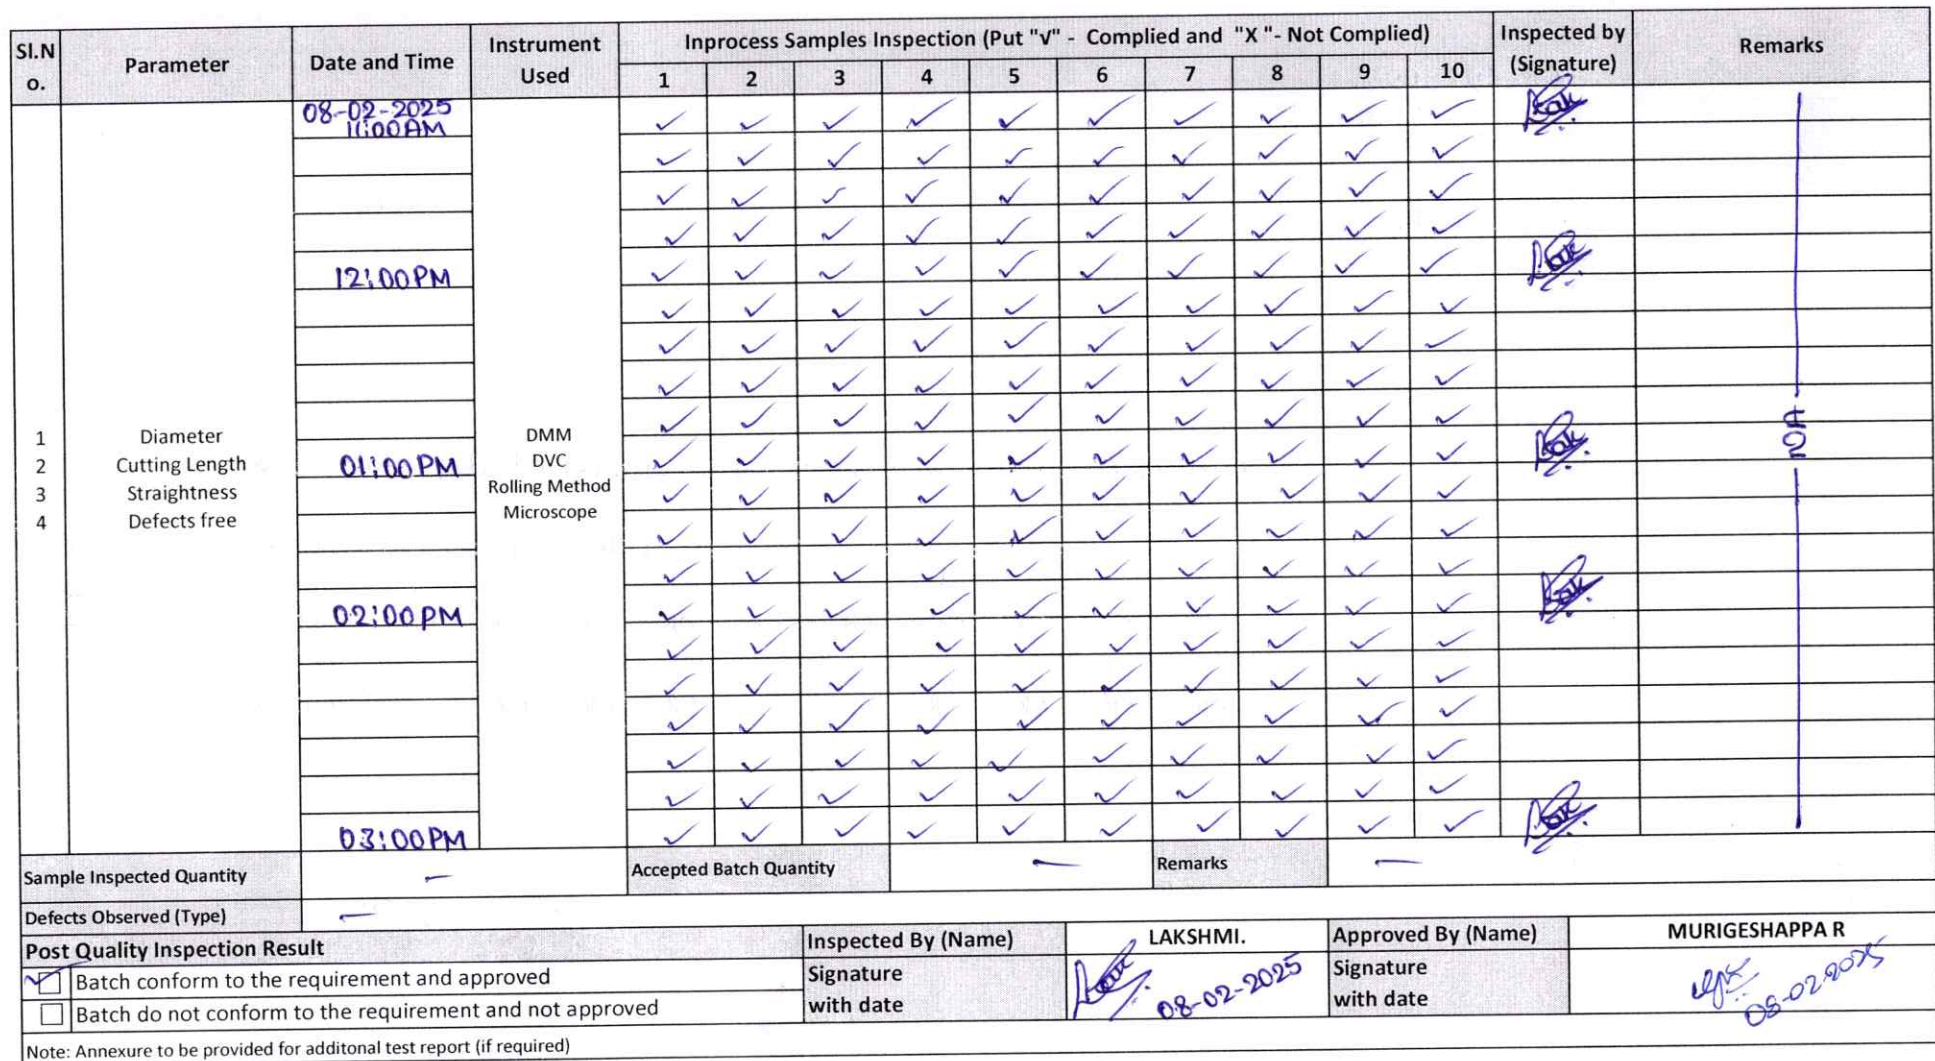 Sl.N o. Parameter Date and Time Instrument Used Inprocess Samples Inspection (Put "√" - Complied and "X "- Not Complied) Inspected by (Signature) Remarks
1 2 3 4 5 6 7 8 9 10
08-02-2025
11:00AM ✓ ✓ ✓ ✓ ✓ ✓ ✓ ✓ ✓ ✓
✓ ✓ ✓ ✓ ✓ ✓ ✓ ✓ ✓ ✓
✓ ✓ ✓ ✓ ✓ ✓ ✓ ✓ ✓ ✓
✓ ✓ ✓ ✓ ✓ ✓ ✓ ✓ ✓ ✓
12:00PM ✓ ✓ ✓ ✓ ✓ ✓ ✓ ✓ ✓ ✓
✓ ✓ ✓ ✓ ✓ ✓ ✓ ✓ ✓ ✓
✓ ✓ ✓ ✓ ✓ ✓ ✓ ✓ ✓ ✓
✓ ✓ ✓ ✓ ✓ ✓ ✓ ✓ ✓ ✓
✓ ✓ ✓ ✓ ✓ ✓ ✓ ✓ ✓ ✓
1 Diameter DMM
2 Cutting Length DVC
3 Straightness Rolling Method
4 Defects free Microscope
01:00PM ✓ ✓ ✓ ✓ ✓ ✓ ✓ ✓ ✓ ✓
✓ ✓ ✓ ✓ ✓ ✓ ✓ ✓ ✓ ✓
✓ ✓ ✓ ✓ ✓ ✓ ✓ ✓ ✓ ✓
✓ ✓ ✓ ✓ ✓ ✓ ✓ ✓ ✓ ✓
02:00PM ✓ ✓ ✓ ✓ ✓ ✓ ✓ ✓ ✓ ✓
✓ ✓ ✓ ✓ ✓ ✓ ✓ ✓ ✓ ✓
✓ ✓ ✓ ✓ ✓ ✓ ✓ ✓ ✓ ✓
✓ ✓ ✓ ✓ ✓ ✓ ✓ ✓ ✓ ✓
✓ ✓ ✓ ✓ ✓ ✓ ✓ ✓ ✓ ✓
✓ ✓ ✓ ✓ ✓ ✓ ✓ ✓ ✓ ✓
03:00PM ✓ ✓ ✓ ✓ ✓ ✓ ✓ ✓ ✓ ✓
Sample Inspected Quantity — Accepted Batch Quantity — Remarks —
Defects Observed (Type) —
Post Quality Inspection Result Inspected By (Name) LAKSHMI. Approved By (Name) MURIGESHAPPA R
✓ Batch conform to the requirement and approved Signature with date 08-02-2025 Signature with date 08-02-2025
☐ Batch do not conform to the requirement and not approved
Note: Annexure to be provided for additonal test report (if required)